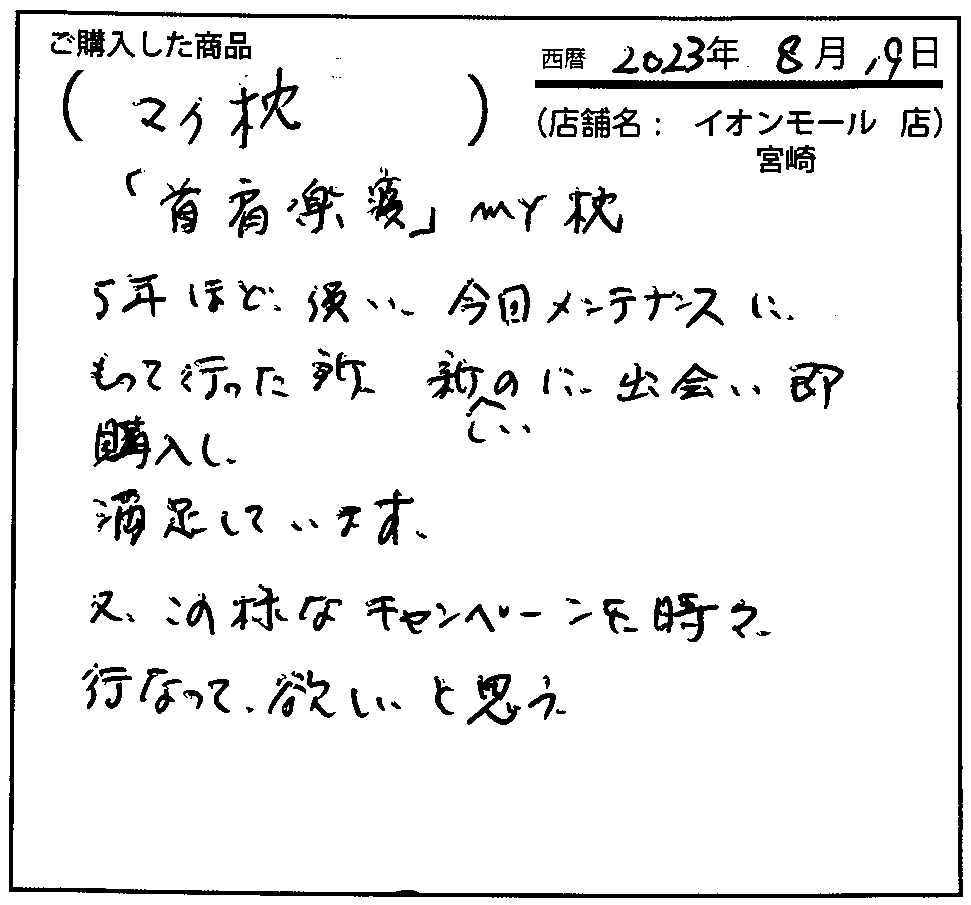 ご購入した商品
西暦 2023年 8月 19日
( マイ枕 )
(店舗名: イオンモール 店)
宮崎
「首肩楽寝」MY枕
5年ほど、使い、今回メンテナンスに、
もって行った所、新しいのに、出会い即
購入し、
満足しています、
又、この様なキャンペーンを、時々、
行なって、欲しい、と思う、